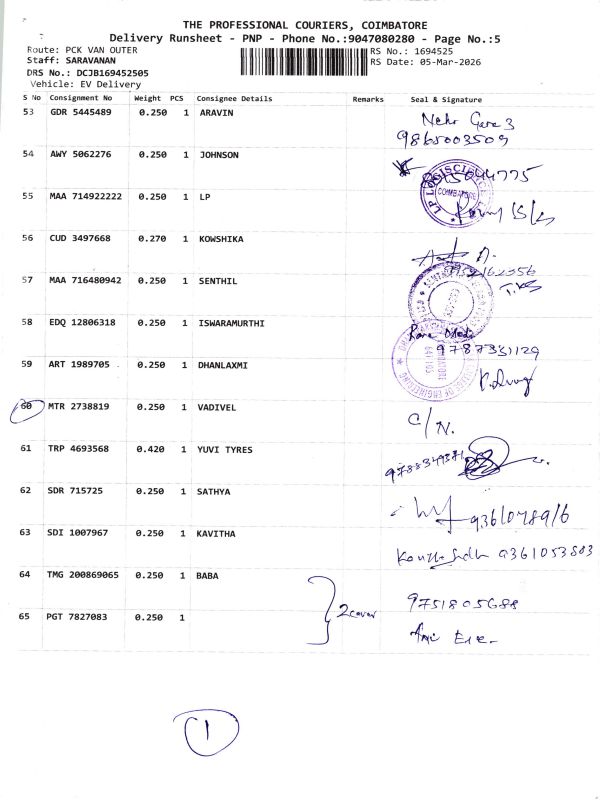 THE PROFESSIONAL COURIERS, COIMBATORE
Delivery Runsheet - PNP - Phone No.:9047080280 - Page No.:5
Route: PCK VAN OUTER
RS No.: 1694525
Staff: SARAVANAN
RS Date: 05-Mar-2026
DRS No.: DCJB169452505
Vehicle: EV Delivery
S No Consignment No Weight PCS Consignee Details Remarks Seal & Signature
53 GDR 5445489 0.250 1 ARAVIN
9865003509
54 AWY 5062276 0.250 1 JOHNSON
COIMBATORE
55 MAA 714922222 0.250 1 LP
56 CUD 3497668 0.270 1 KOWSHIKA
57 MAA 716480942 0.250 1 SENTHIL
58 EDQ 12806318 0.250 1 ISWARAMURTHI
9787331129
59 ART 1989705 0.250 1 DHANLAXMI
60 MTR 2738819 0.250 1 VADIVEL C/N.
61 TRP 4693568 0.420 1 YUVI TYRES
62 SDR 715725 0.250 1 SATHYA
9361078916
63 SDI 1007967 0.250 1 KAVITHA
9361053803
64 TMG 200869065 0.250 1 BABA
9751805688
2 cover
65 PGT 7827083 0.250 1
1